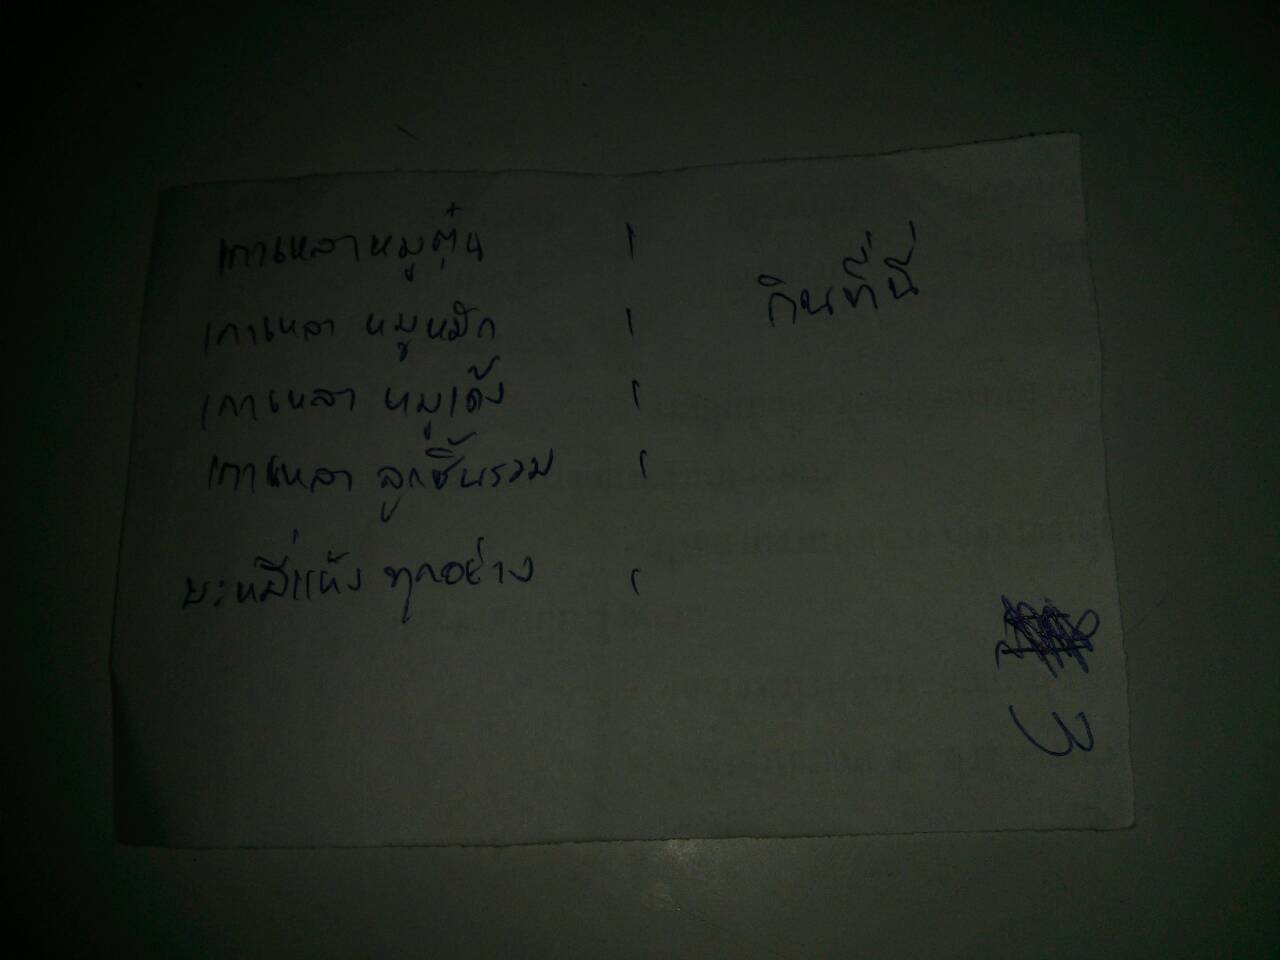 เกาเหลาหมูตุ๋น 1
เกาเหลา หมูหมัก 1
เกาเหลา หมูเด้ง 1
เกาเหลา ลูกชิ้นรวม 1
บะหมี่แห้ง ทุกอย่าง 1
กินที่นี่
3